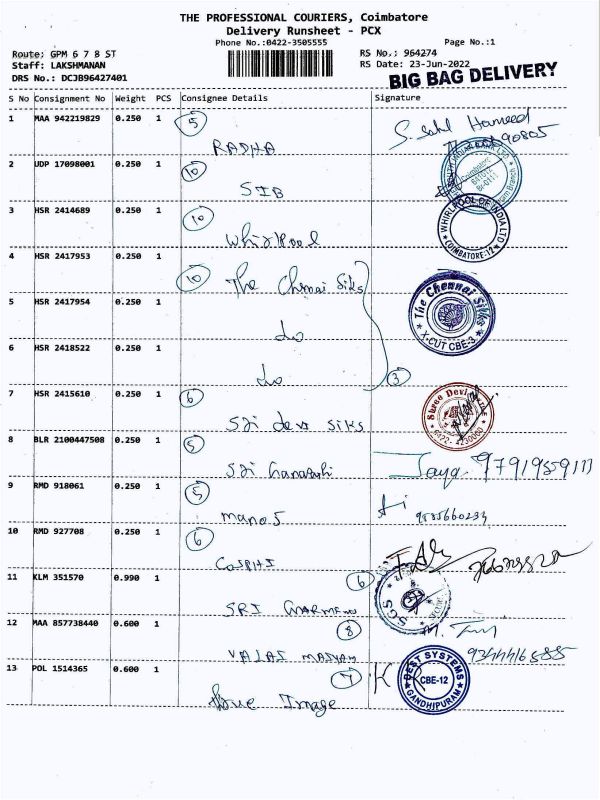 THE PROFESSIONAL COURIERS, Coimbatore
Delivery Runsheet - PCX
Phone No.:0422-3505555 Page No.:1
Route: GPM 6 7 8 ST RS No.: 964274
Staff: LAKSHMANAN RS Date: 23-Jun-2022
DRS No.: DCJB96427401 BIG BAG DELIVERY
S No Consignment No Weight PCS Consignee Details Signature
1 MAA 942219829 0.250 1 5
RADHA
2 UDP 17098001 0.250 1 10
SIB
3 HSR 2414689 0.250 1 10 WHIRLPOOL OF INDIA LTD COIMBATORE-12
Whirlpool
4 HSR 2417953 0.250 1 10 The Chennai Silks
5 HSR 2417954 0.250 1 The Chennai Silks X-CUT CBE-3
Do
6 HSR 2418522 0.250 1
Do 3
7 HSR 2415610 0.250 1 6 Shree Devi
Sri devi silks
8 BLR 2100447508 0.250 1 5
Sri Jaya. 9791959111
9 RMD 918061 0.250 1 5
manos
10 RMD 927708 0.250 1 6
11 KLM 351570 0.990 1 6 SGS
SRI
12 MAA 857738440 0.600 1 8
VALAI
13 POL 1514365 0.600 1 7 BEST SYSTEMS CBE-12 GANDHIPURAM
Blue Image